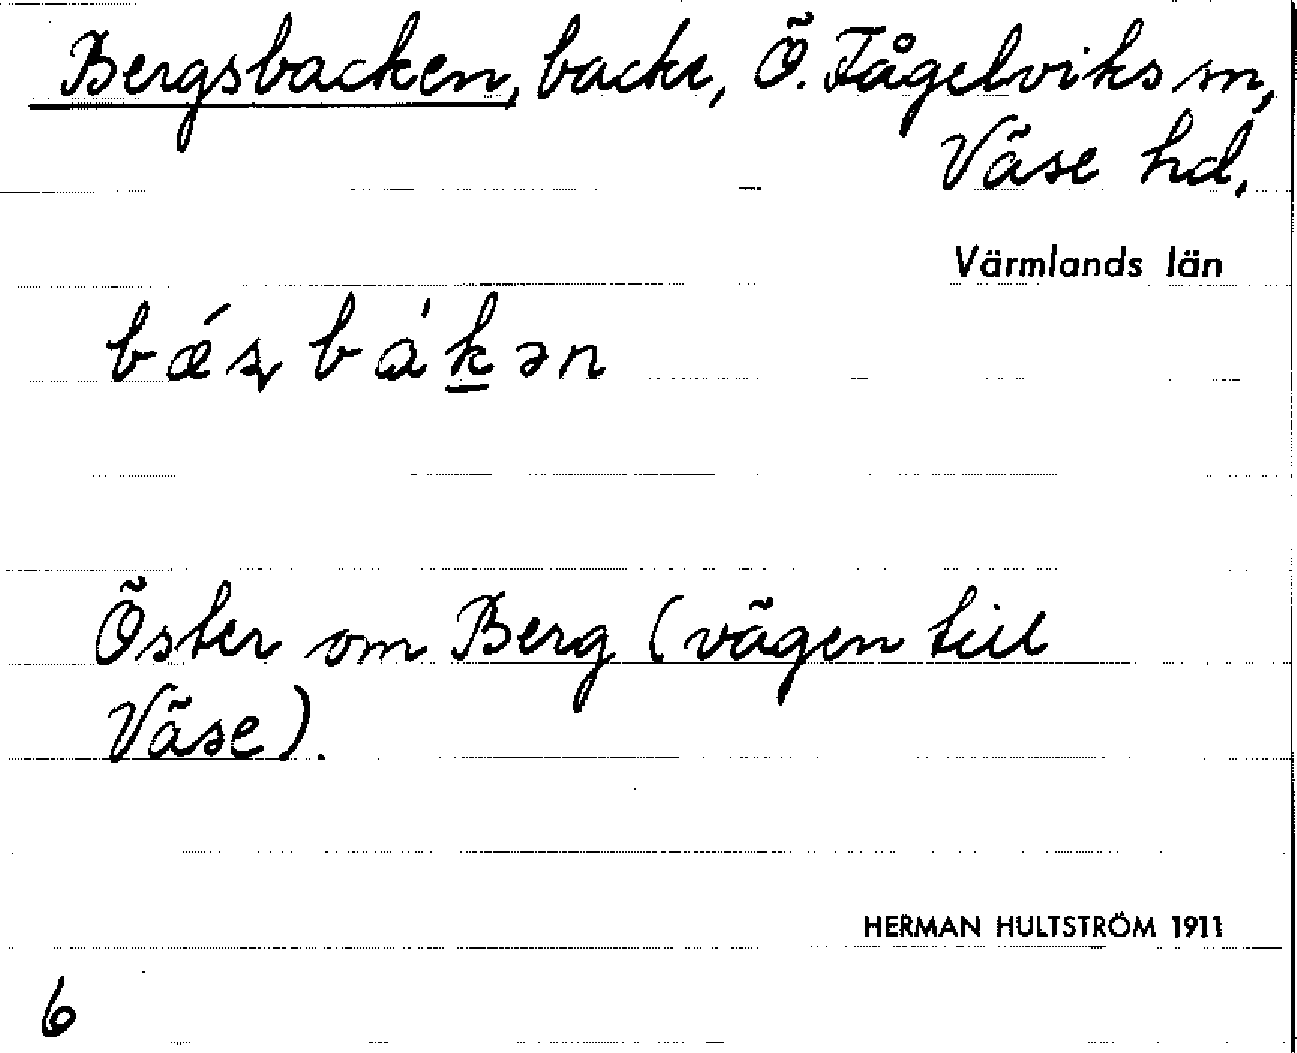 Bergsbacken, backe, Ö. Fågelviks sn,
Väse hd,
Värmlands län
bǽʂbàk̲ən
Öster om Berg (vägen till
Väse).
HERMAN HULTSTRÖM 1911
6